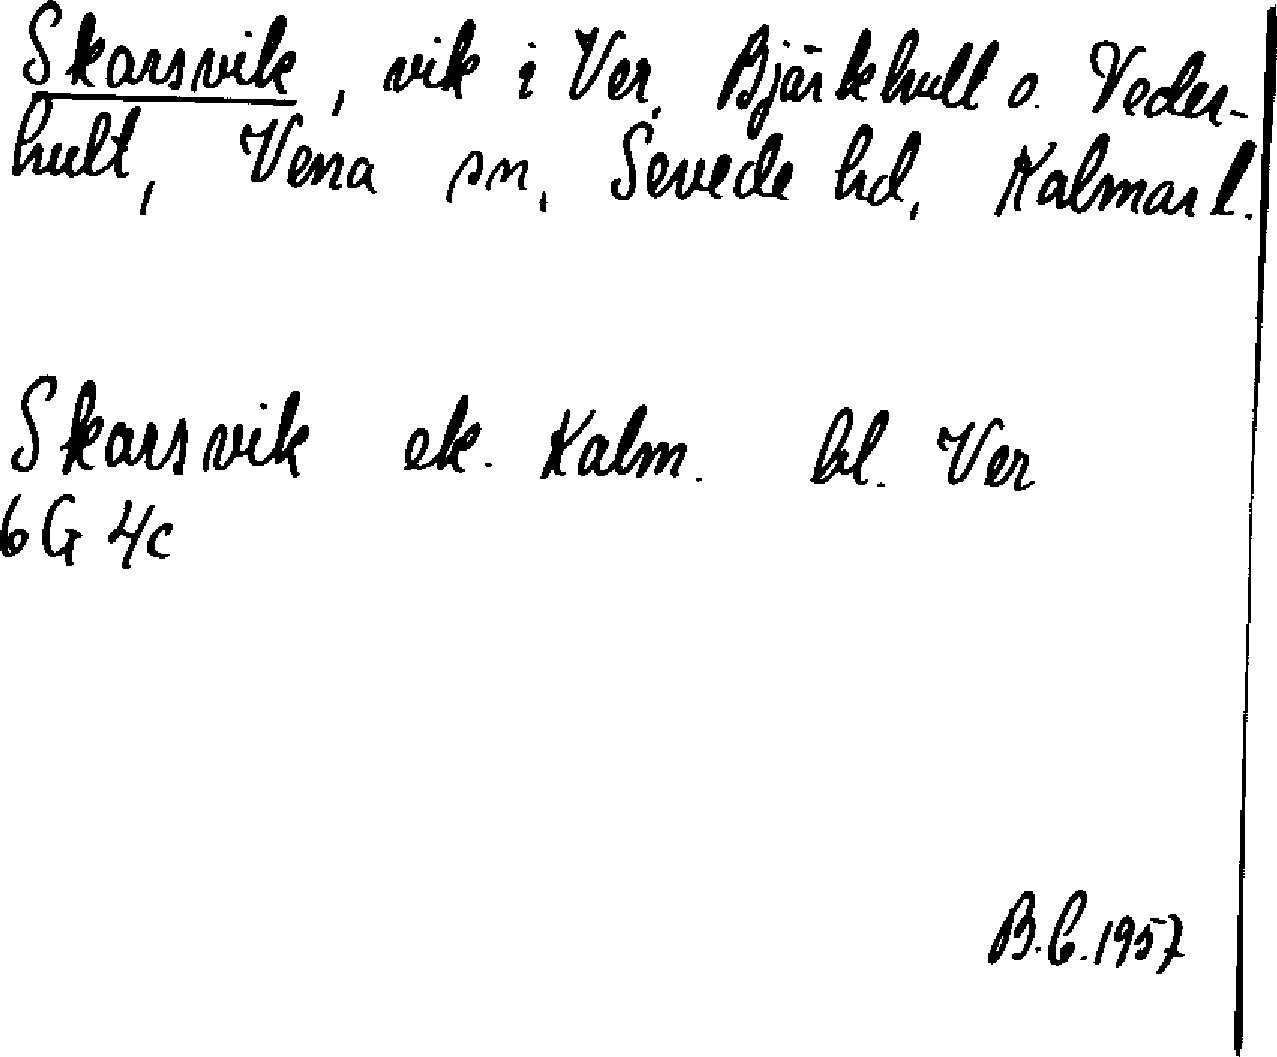 Skarsvik, vik i Ver, Bjärkhult o. Veder-
hult, Vena sn, Sevede hd, Kalmar l.
Skarsvik ek. Kalm. bl. Ver
6G 4c
B.C. 1957